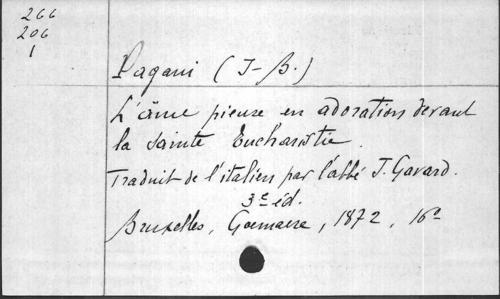 266
206
1
Pagani (J-B.)
L'âme pieuse en adoration devant
la Sainte Eucharistie.
Traduit de l'italien par l'abbé J. Gavard.
3e éd.
Bruxelles, Goemaere, 1872, 16°